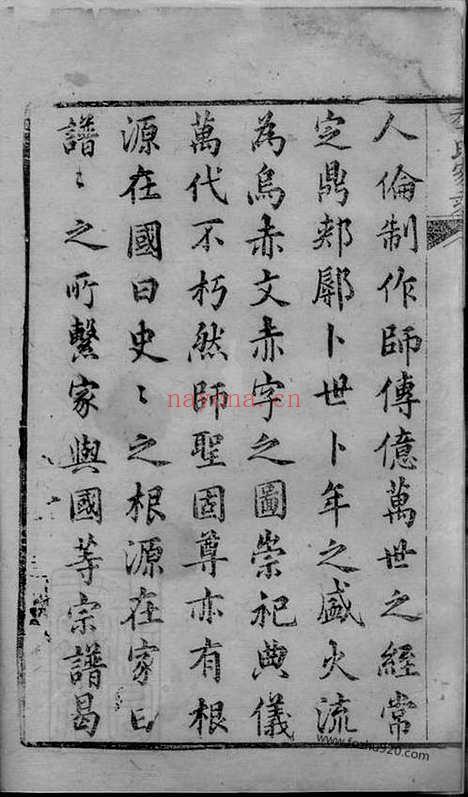 人倫制作師傳億萬世之經常
定鼎郟鄏卜世卜年之盛火流
為烏赤文赤字之圖崇祀典儀
萬代不朽然師聖固尊亦有根
源在國曰史〻之根源在家曰
譜〻之所繫家與國等宗譜曷
氏家譜
nayona.cn
www.foshu920.com